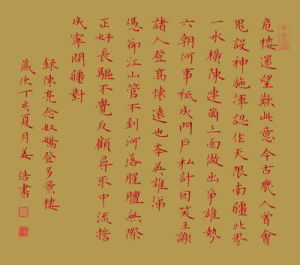 危樓還望歎此意今古幾人曾會
鬼設神施渾認作天限南疆北界
一水橫陳連崗三面做出爭雄勢
六朝何事祇成門戶私計因笑王謝
諸人登高懷遠也學英雄涕
憑卻江山管不到河洛腥膻無際
正好長驅不須反顧尋取中流誓
成寧問疆對
錄陳亮念奴嬌登多景樓
歲次丁亥夏月姜浩書